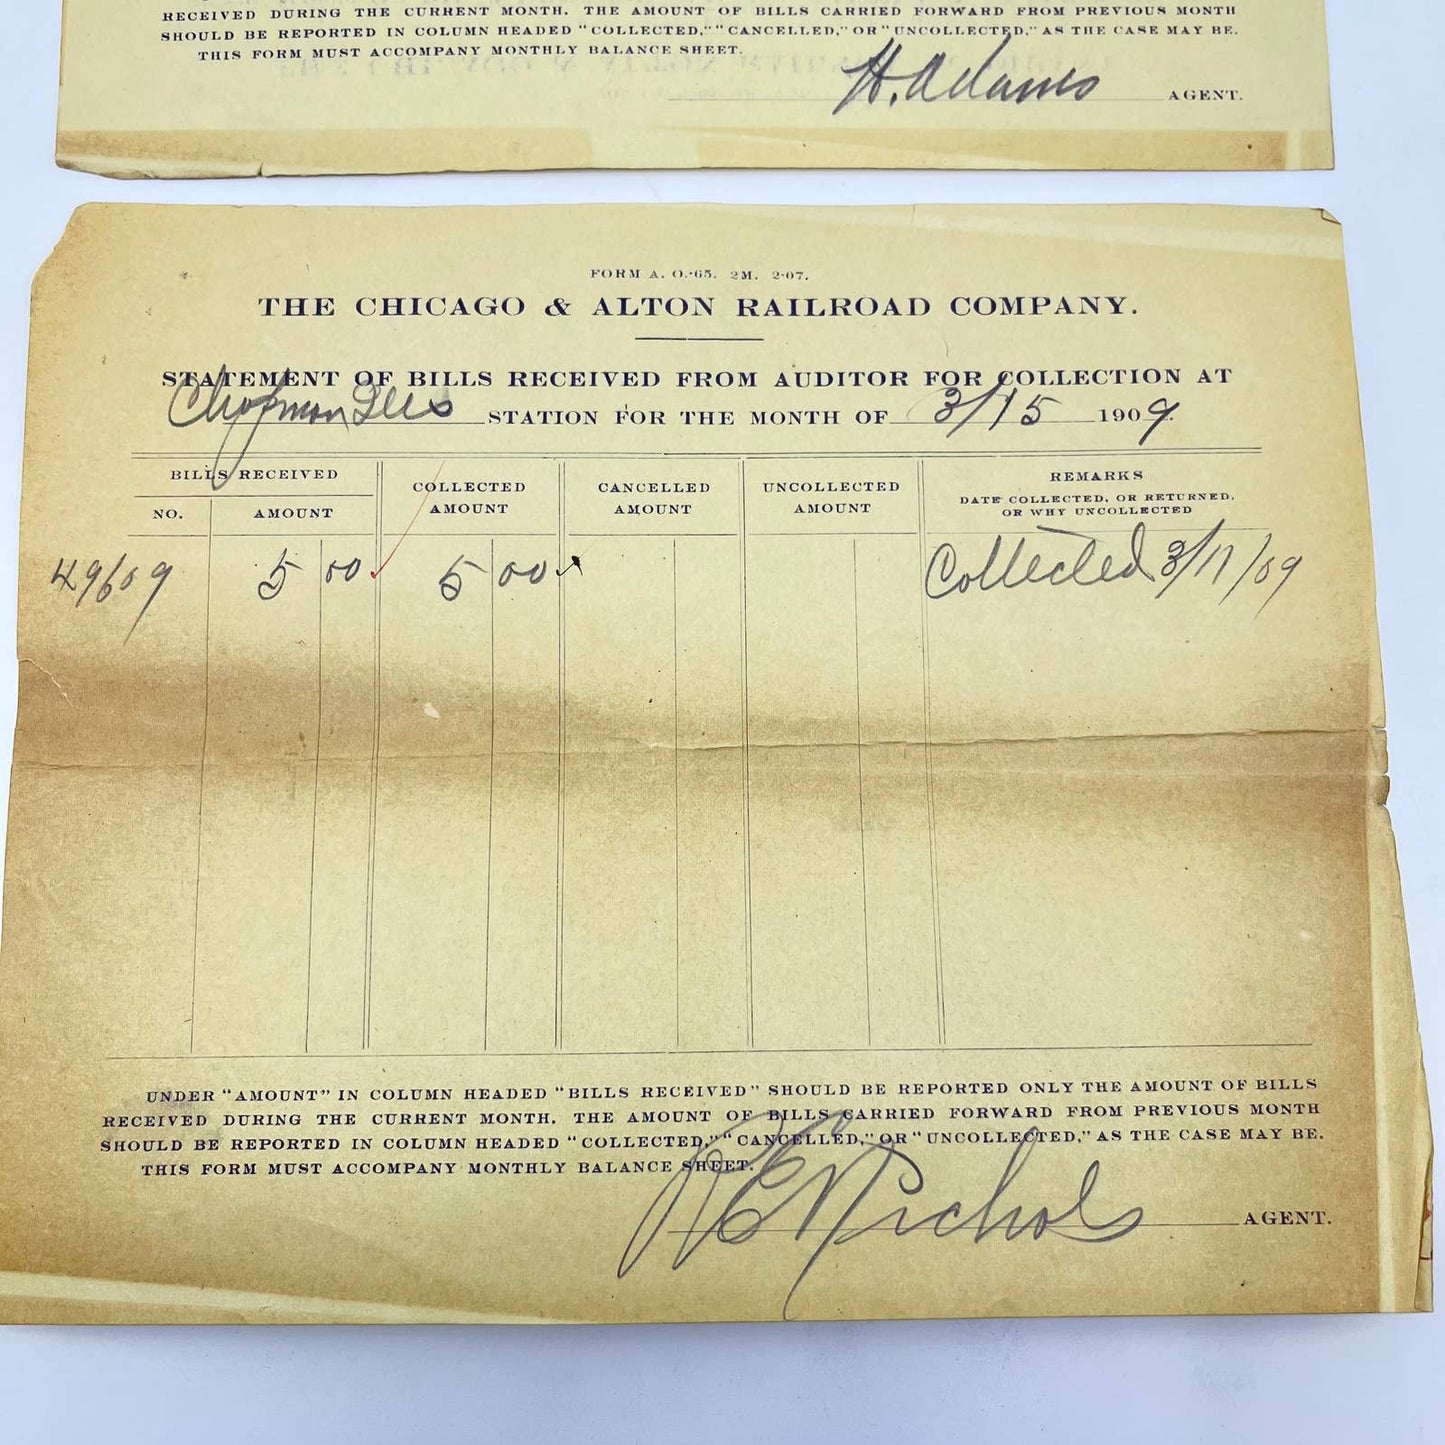 RECEIVED DURING THE CURRENT MONTH. THE AMOUNT OF BILLS CARRIED FORWARD FROM PREVIOUS MONTH
SHOULD BE REPORTED IN COLUMN HEADED "COLLECTED," "CANCELLED," OR "UNCOLLECTED," AS THE CASE MAY BE.
THIS FORM MUST ACCOMPANY MONTHLY BALANCE SHEET.
H. Adams AGENT.
FORM A. O.-65. 2M. 2-07.
THE CHICAGO & ALTON RAILROAD COMPANY.
STATEMENT OF BILLS RECEIVED FROM AUDITOR FOR COLLECTION AT
Chapman Ills STATION FOR THE MONTH OF 3/15 1909.
BILLS RECEIVED
NO. AMOUNT
COLLECTED
AMOUNT
CANCELLED
AMOUNT
UNCOLLECTED
AMOUNT
REMARKS
DATE COLLECTED, OR RETURNED,
OR WHY UNCOLLECTED
49609 5 00 5 00 Collected 3/17/09
UNDER "AMOUNT" IN COLUMN HEADED "BILLS RECEIVED" SHOULD BE REPORTED ONLY THE AMOUNT OF BILLS
RECEIVED DURING THE CURRENT MONTH. THE AMOUNT OF BILLS CARRIED FORWARD FROM PREVIOUS MONTH
SHOULD BE REPORTED IN COLUMN HEADED "COLLECTED," "CANCELLED," OR "UNCOLLECTED," AS THE CASE MAY BE.
THIS FORM MUST ACCOMPANY MONTHLY BALANCE SHEET.
Nichols AGENT.